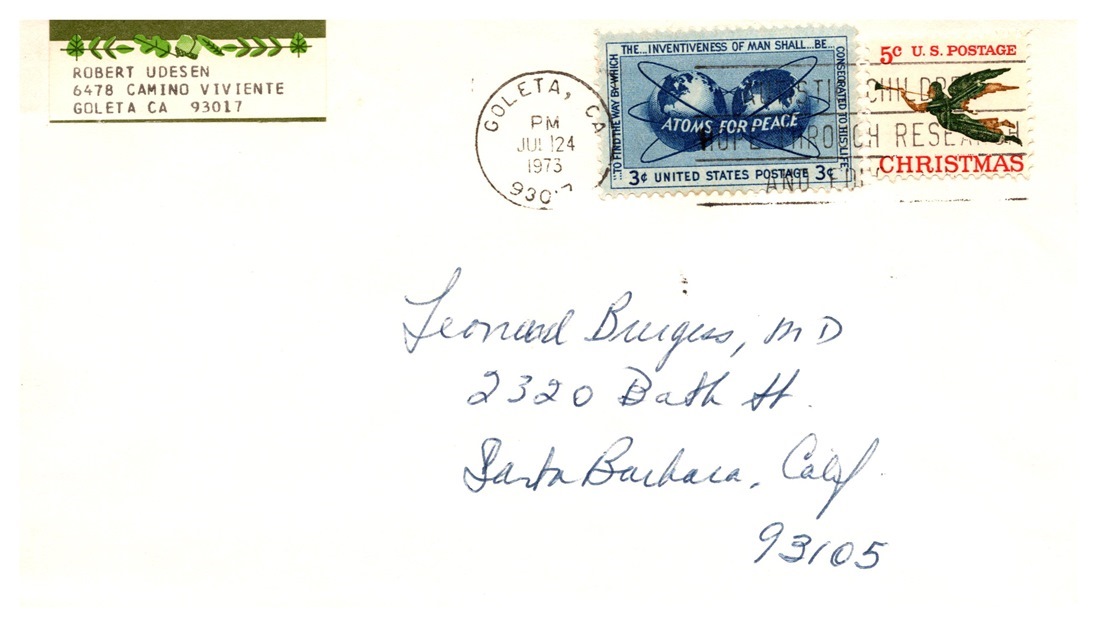 ROBERT UDESEN
6478 CAMINO VIVIENTE
GOLETA CA 93017
GOLETA, CA
PM
JUL 24
1973
930
...TO FIND THE WAY BY WHICH
THE...INVENTIVENESS OF MAN SHALL...BE...
CONSECRATED TO HIS LIFE
ATOMS FOR PEACE
3¢ UNITED STATES POSTAGE 3¢
5¢ U.S. POSTAGE
CHRISTMAS
CHILDRE
HOPE THROUGH RESEARCH
AND
Leonard Burgess, MD
2320 Bath St.
Santa Barbara, Calif.
93105